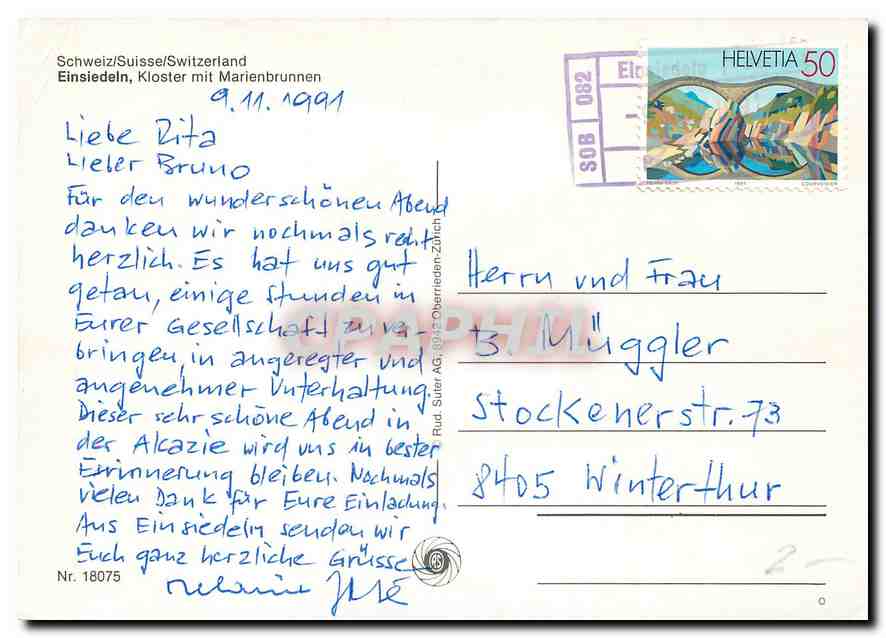 Schweiz/Suisse/Switzerland
Einsiedeln, Kloster mit Marienbrunnen
9.11.1991
Liebe Rita
Lieber Bruno
Für den wunderschönen Abend
danken wir nochmals recht
herzlich. Es hat uns gut
getan, einige Stunden in
Eurer Gesellschaft zu ver-
bringen, in angeregter und
angenehmer Unterhaltung.
Dieser sehr schöne Abend in
der Akazie wird uns in bester
Erinnerung bleiben. Nochmals
vielen Dank für Eure Einladung.
Aus Einsiedeln senden wir
Euch ganz herzliche Grüsse
Melanie
Nr. 18075
© Rud. Suter AG, 8942 Oberrieden-Zürich
SOB 082
Einsiedeln
HELVETIA 50
1991 COURVOISIER
Herrn und Frau
B. Müggler
Stockenerstr. 73
8405 Winterthur
RS
2-
CPAPHIL